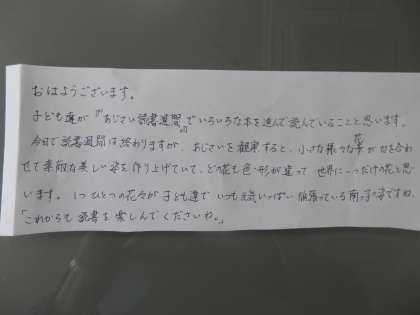 おはようございます。
子ども達が『あじさい読書週間』でいろいろな本を進んで読んでいることと思います。
今日で読書週間は終わりますが、あじさいを観察すると、小さな様々な花が力を合わ
せて素敵な美しい姿を作り上げていて、どの花も色・形が違って世界に一つだけの花と思
います。一つひとつの花々が子ども達で いつも元気いっぱい頑張っている南っ子の姿ですね。
「これからも 読書を楽しんでくださいね。」